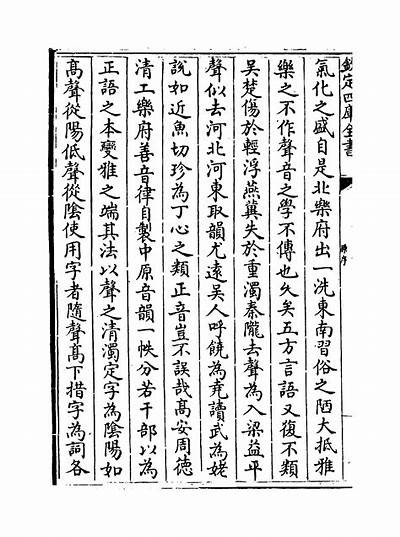 欽定四庫全書
原序
氣化之盛自是北樂府出一洗東南習俗之陋大抵雅
樂之不作聲音之學不傳也久矣五方言語又復不類
吳楚傷於輕浮燕冀失於重濁秦隴去聲為入梁益平
聲似去河北河東取韻尤遠吳人呼饒為堯讀武為姥
說如近魚切珍為丁心之類正音豈不誤哉髙安周德
清工樂府善音律自製中原音韻一帙分若干部以為
正語之本變雅之端其法以聲之清濁定字為隂陽如
髙聲從陽低聲從隂使用字者隨聲髙下措字為詞各